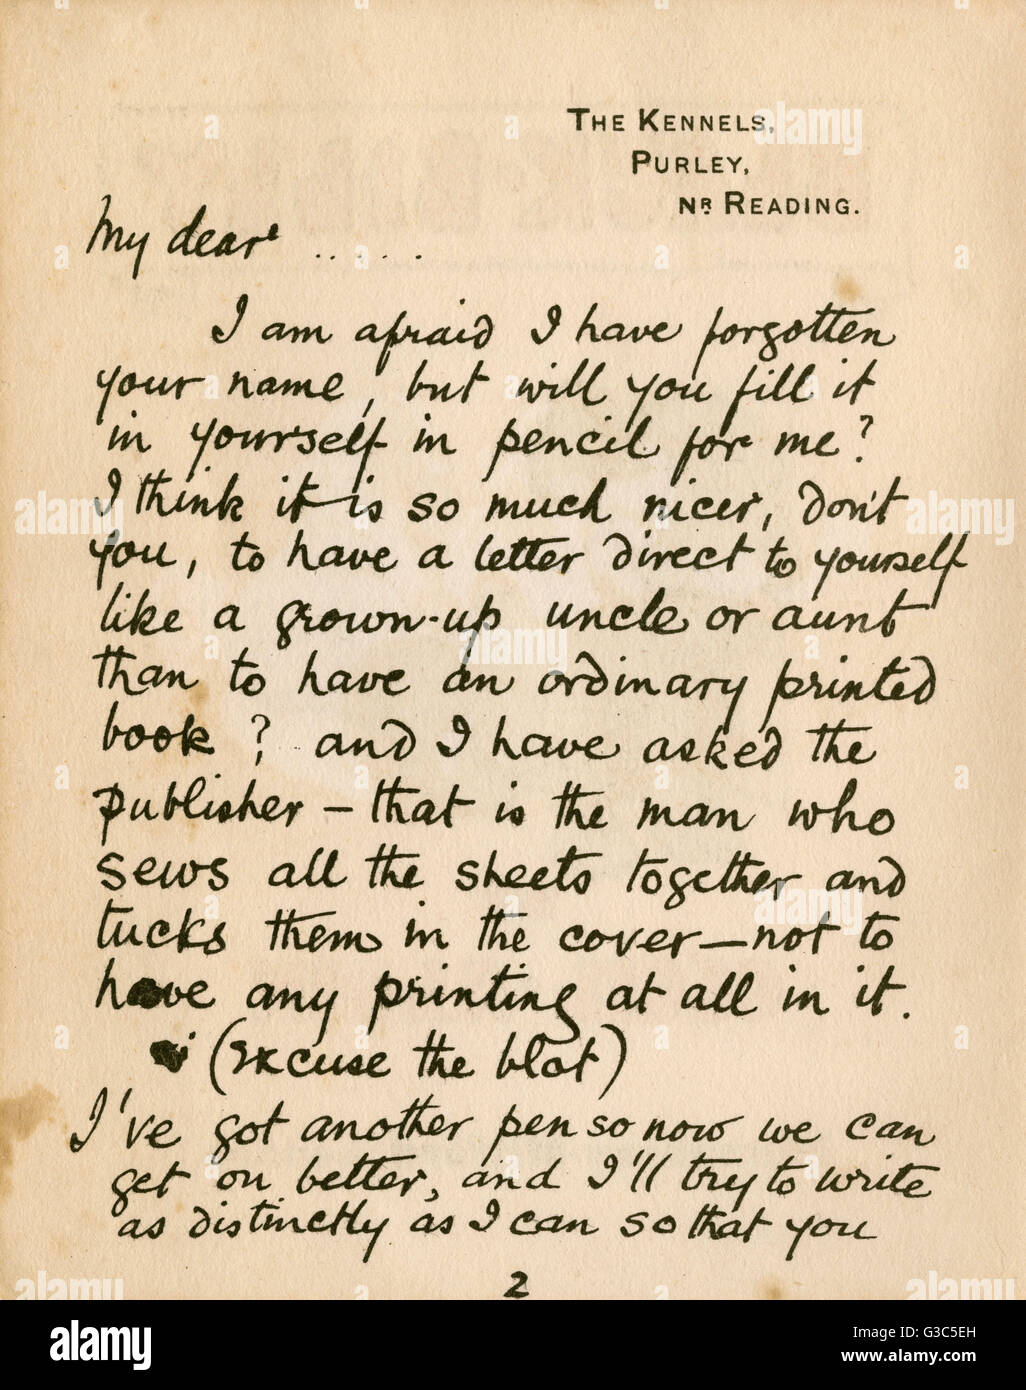 THE KENNELS,
PURLEY,
NR READING.
My dear .....
I am afraid I have forgotten
your name, but will you fill it
in yourself in pencil for me?
I think it is so much nicer, don't
you, to have a letter direct to yourself
like a grown-up uncle or aunt
than to have an ordinary printed
book? and I have asked the
publisher — that is the man who
sews all the sheets together and
tucks them in the cover — not to
have any printing at all in it.
(excuse the blot)
I've got another pen so now we can
get on better, and I'll try to write
as distinctly as I can so that you
2
alamy
Image ID: G3C5EH
www.alamy.com